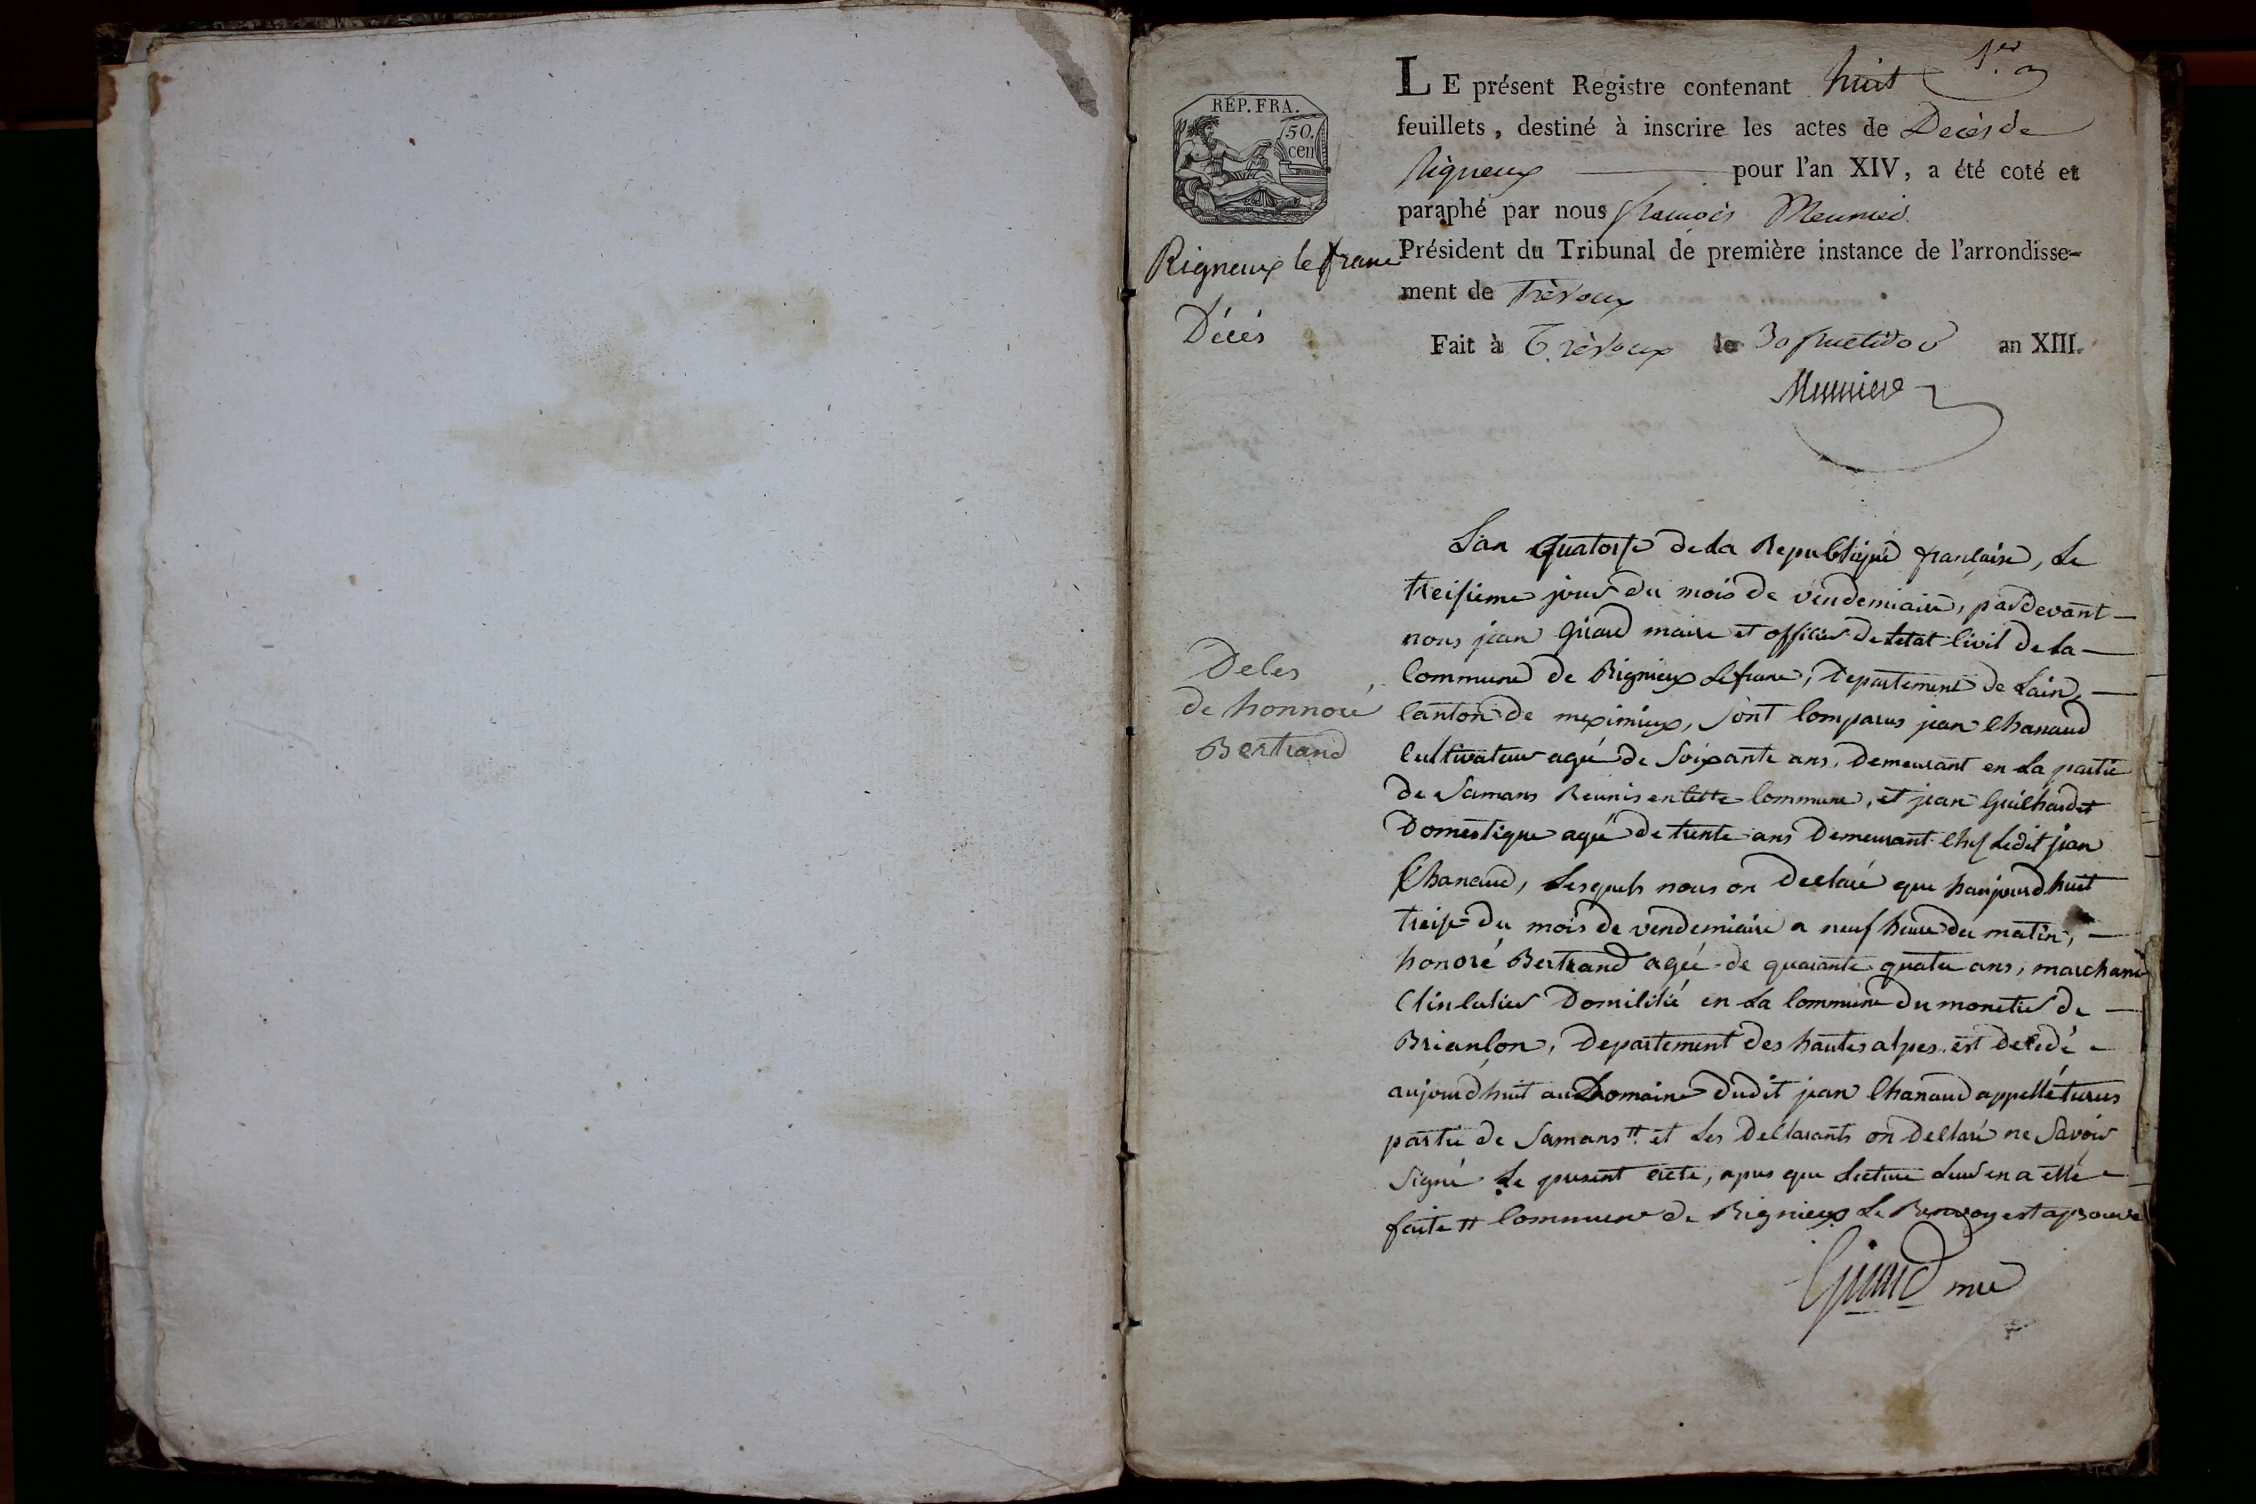 1.er
LE présent Registre contenant huit
feuillets, destiné à inscrire les actes de Decès de
Rigneux pour l'an XIV, a été coté et
paraphé par nous françois Meunier
Président du Tribunal de première instance de l'arrondisse-
ment de Trévoux
Fait à Trévoux le 30 fructidor an XIII.
Meunier
RÉP. FRA.
50.
cen
Rigneux le franc
Décès
Deces
de honnoré
Bertrand
Lan quatorse de La Republique française, Le
treisieme jour du mois de vendemiaire, pardevant
nous jean Girard maire et officier de letat Civil de La
Commune de Rignieux Lefranc, Departement de Lain,
Canton de meximieux, sont Comparus jean Chanaud
Cultivateur agé de soixante ans, Demeurant en La partie
de Samans Reunis en Cette Commune, et jean Guichardet
Domestique agé de trente ans Demeurant Chez Ledit jean
Chanaud, Lesquels nous on Declaré que haujourdhuit
treise du mois de vendemiaire a neuf heure du matin,
honoré Bertrand agée de quarante quatre ans, marchand
Clincalier Domicilié en La Commune du monetier de
Briancon, Departement des hautes alpes, est decedé
aujourdhuit au Domaine Dudit jean Chanaud appellé
partie de Samans # et Les Declarants on Declaré ne Savoir
Signé Le present acte, apres que Lecture Leur en a etté
faite # Commune de Rignieux Le Renvoy est aprouvé
Girard mre